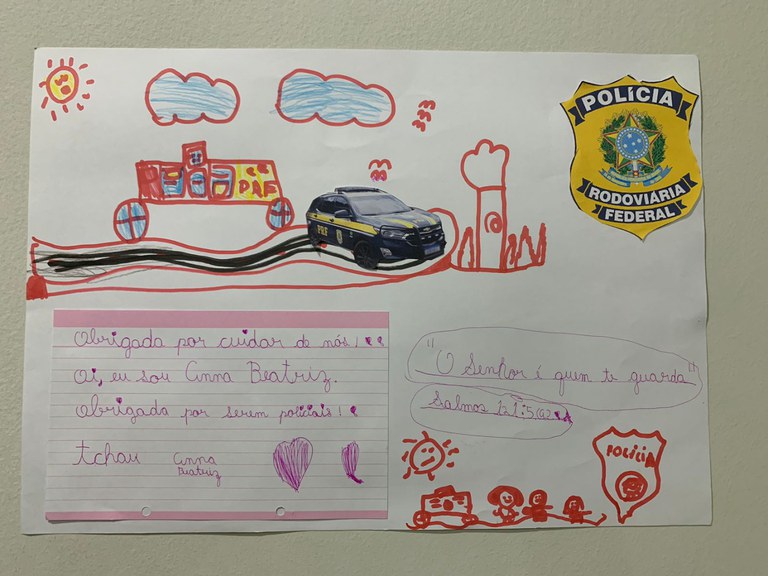 POLÍCIA
RODOVIÁRIA
FEDERAL
PRF
Obrigada por cuidar de nós!
Oi, eu sou Anna Beatriz.
Obrigada por serem policiais!
tchau
Anna
Beatriz
"O Senhor é quem te guarda"
Salmos 121:5(a)
POLICIA